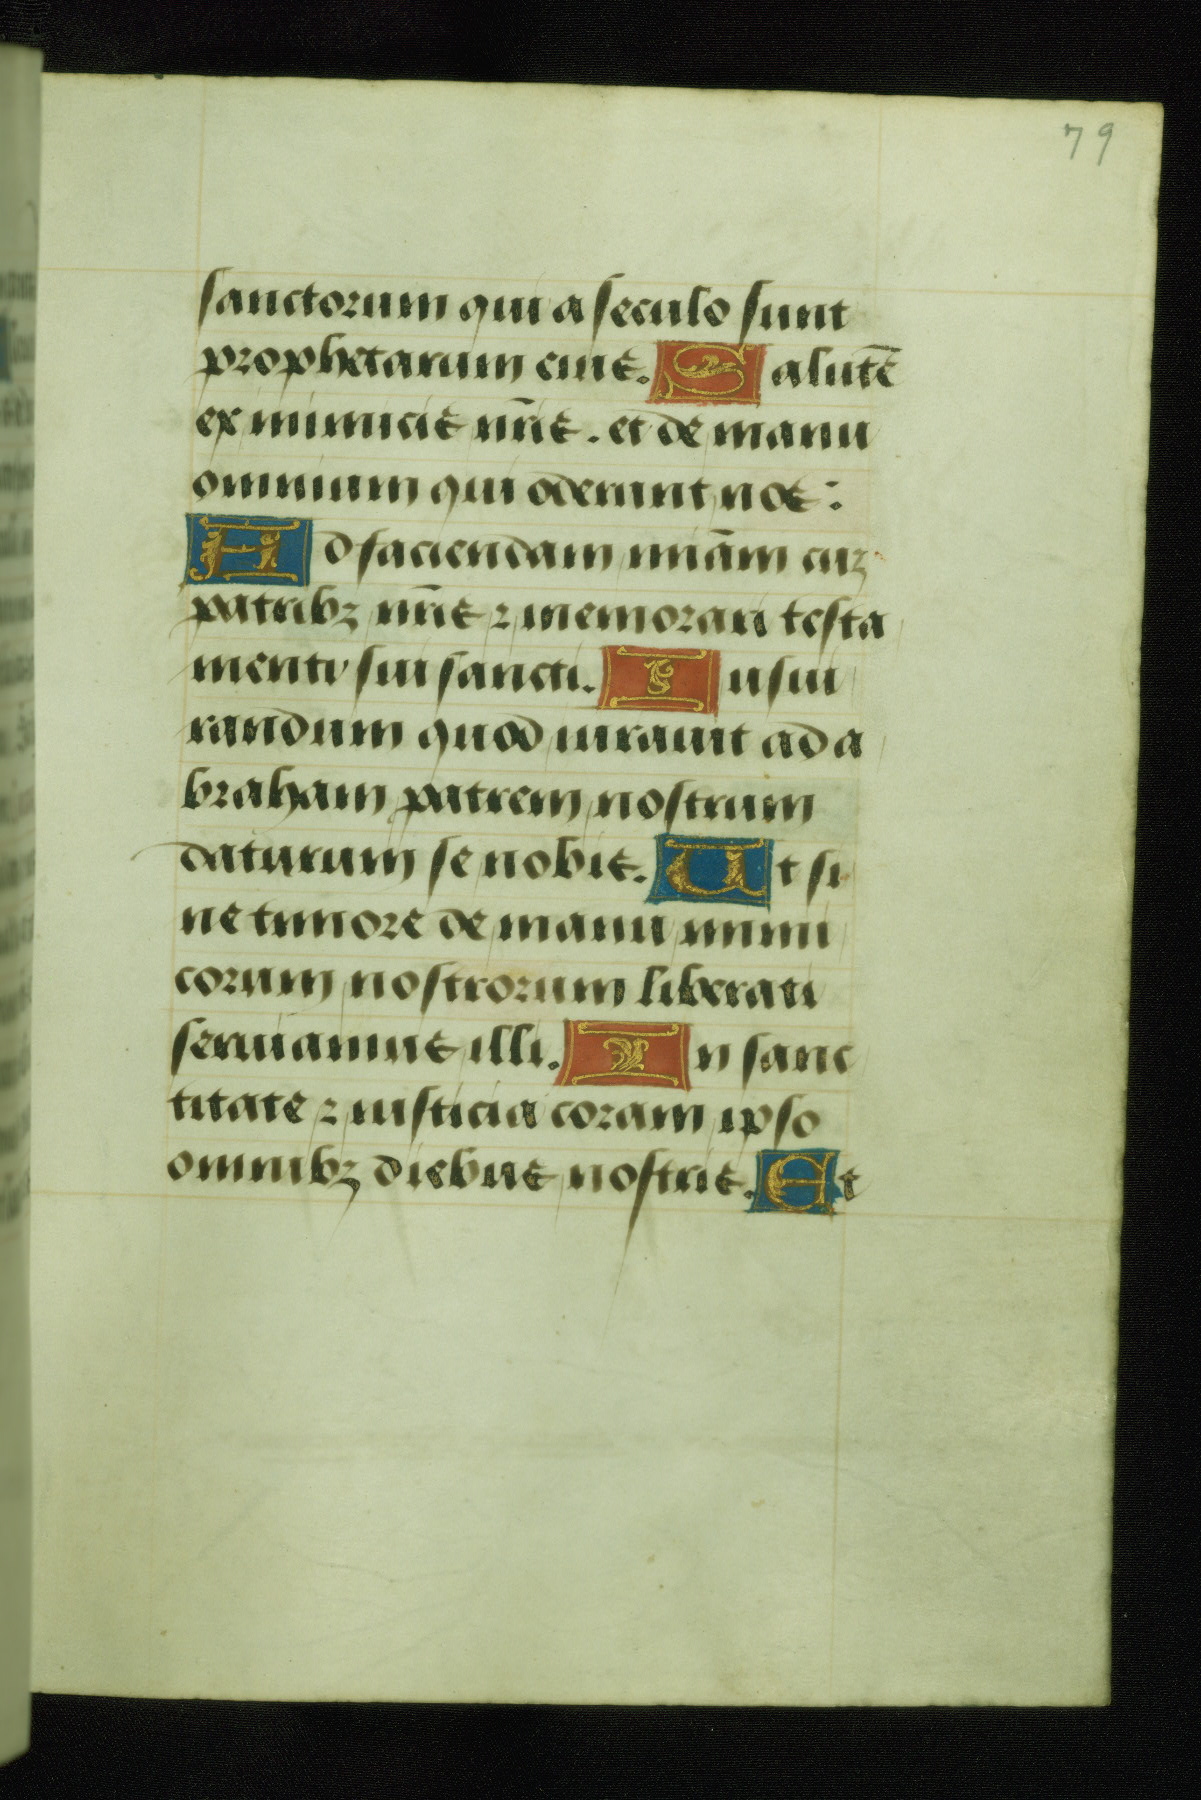 79
sanctorum qui a seculo sunt
prophetarum eius. Salutē
ex inimicis nr̄is. et de manu
omnium qui oderunt nos:
Ad faciendam miām cuȝ
patribȝ nr̄is ⁊ memorari testa
menti sui sancti. Iusiu
randum quod iurauit ad a
braham patrem nostrum
daturum se nobis. Ut si
ne timore de manu inimi
corum nostrorum liberati
seruiamus illi. In sanc
titate ⁊ iusticia coram ipso
omnibȝ diebus nostris. Et